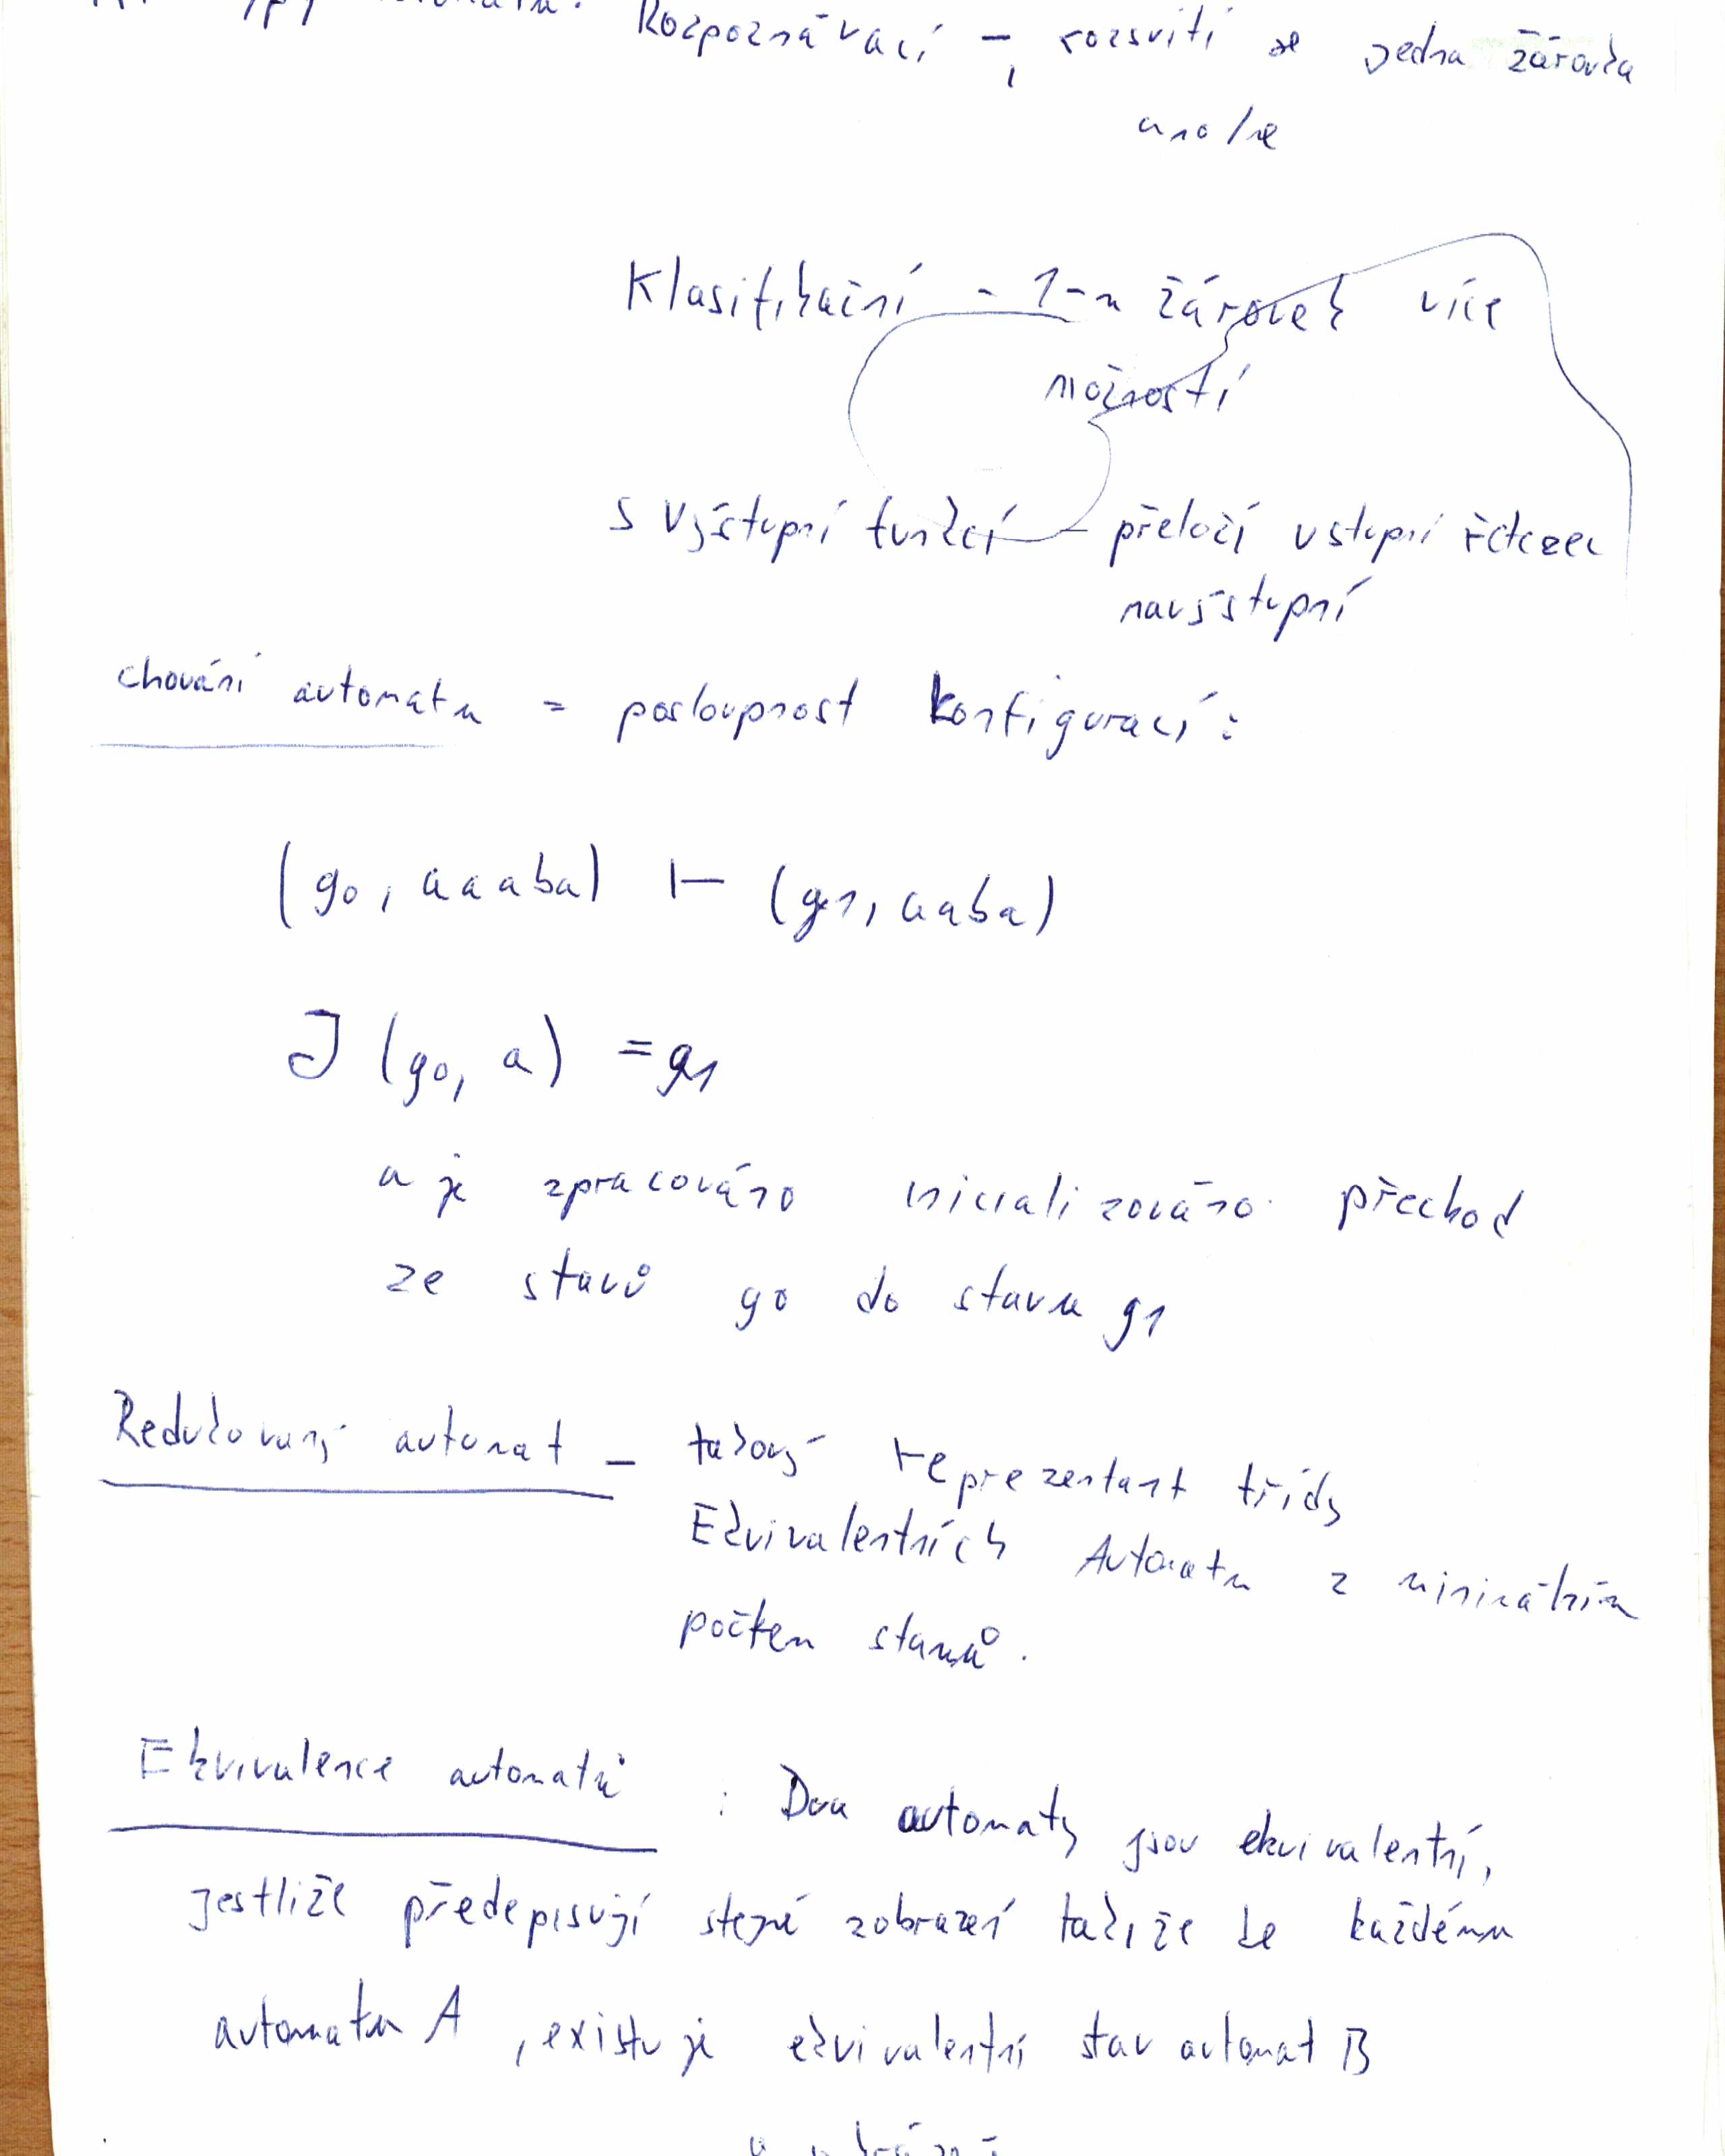 typy automatu: Rozpoznávací - rozsvítí se jedna žárovka
ano/ne
Klasifikační - 1-n žárovek více
možností
s výstupní funkcí - přeloží vstupní řetezec
navýstupní
chování automatu = posloupnost konfigurací:
(q0, aaaba) ⊢ (q1, aaba)
δ (q0, a) = q1
a je zpracováno inicializováno přechod
ze stavů q0 do stavu q1
Redukovaný automat - takový reprezentant třídy
Ekvivalentních Automatu z minimálním
počtem stavů.
Ekvivalence automatů : Dva automaty jsou ekvivalentní,
jestliže předepisují stejné zobrazení takže ke každému
automatu A, existuje ekvivalentní stav automat B